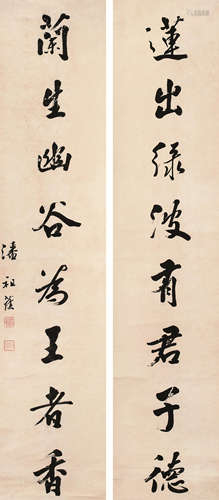 蓮出綠波有君子德
蘭生幽谷為王者香
潘祖蔭